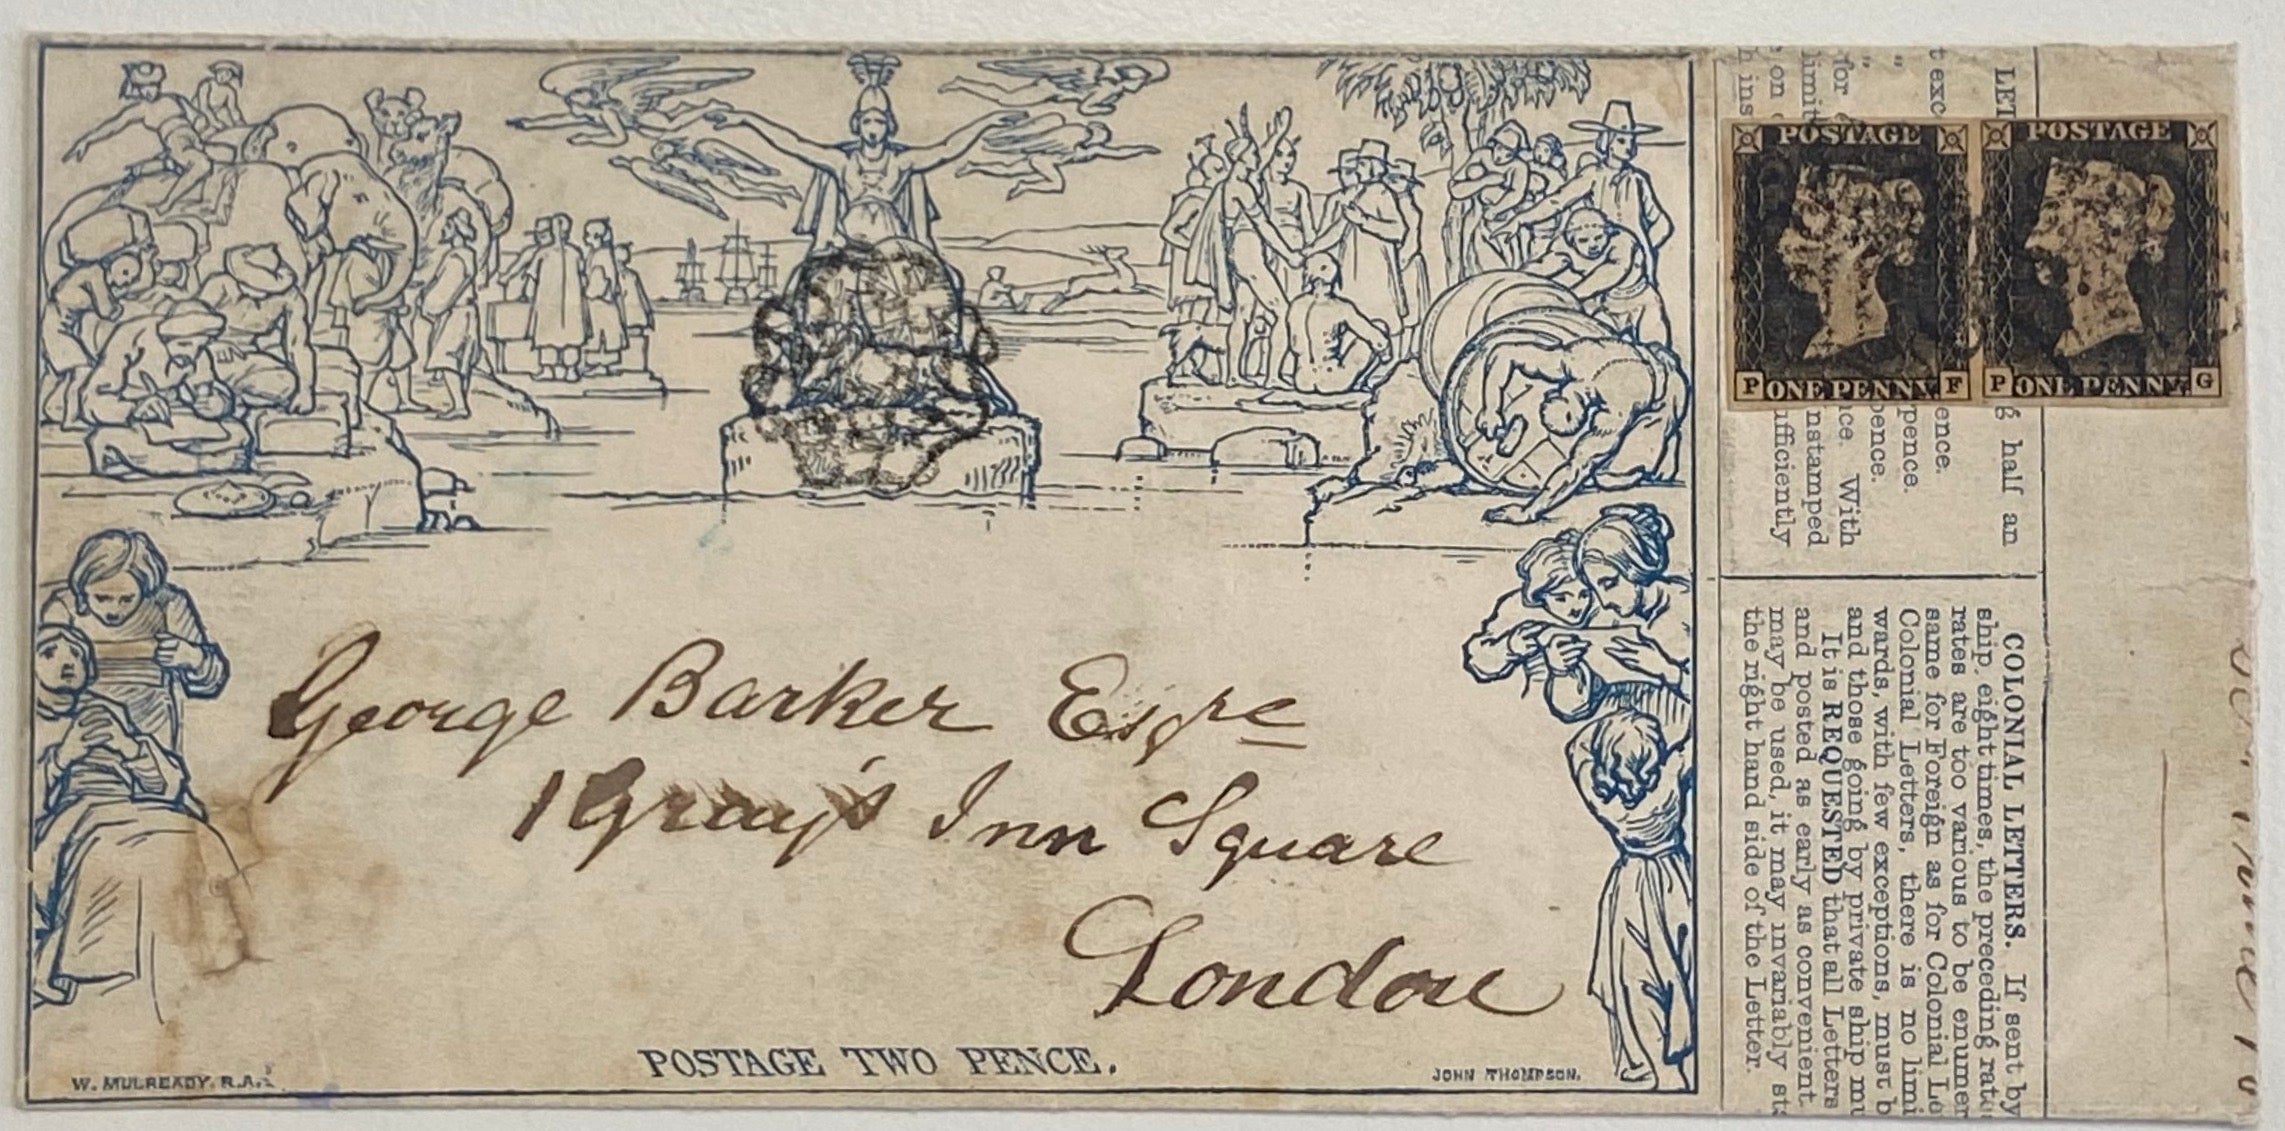 George Barker Esqre
1 Gray's Inn Square
London
POSTAGE TWO PENCE.
W. MULREADY. R.A.
JOHN THOMPSON.
POSTAGE
P ONE PENNY F
POSTAGE
P ONE PENNY G
LET
g half an
t exc
ence.
"
pence.
" pence.
for
ce. With
limit
nstamped
on
ufficiently
h ins
COLONIAL LETTERS. If sent by
ship eight times, the preceding rate
rates are too various to be enumer
same for Foreign as for Colonial Le
Colonial Letters, there is no limi
wards, with few exceptions, must b
and those going by private ship mu
It is REQUESTED that all Letters
and posted as early as convenient
may be used, it may invariably st
the right hand side of the Letter.